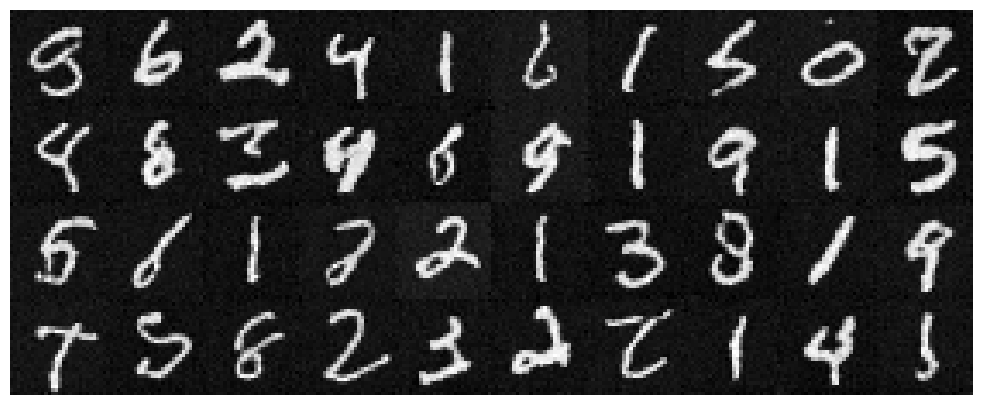 9 6 2 4 1 1 5 0
4 8 3 9 1 9 1 5
5 6 1 2 2 1 3 8 1 9
7 5 8 2 3 2 2 1 4